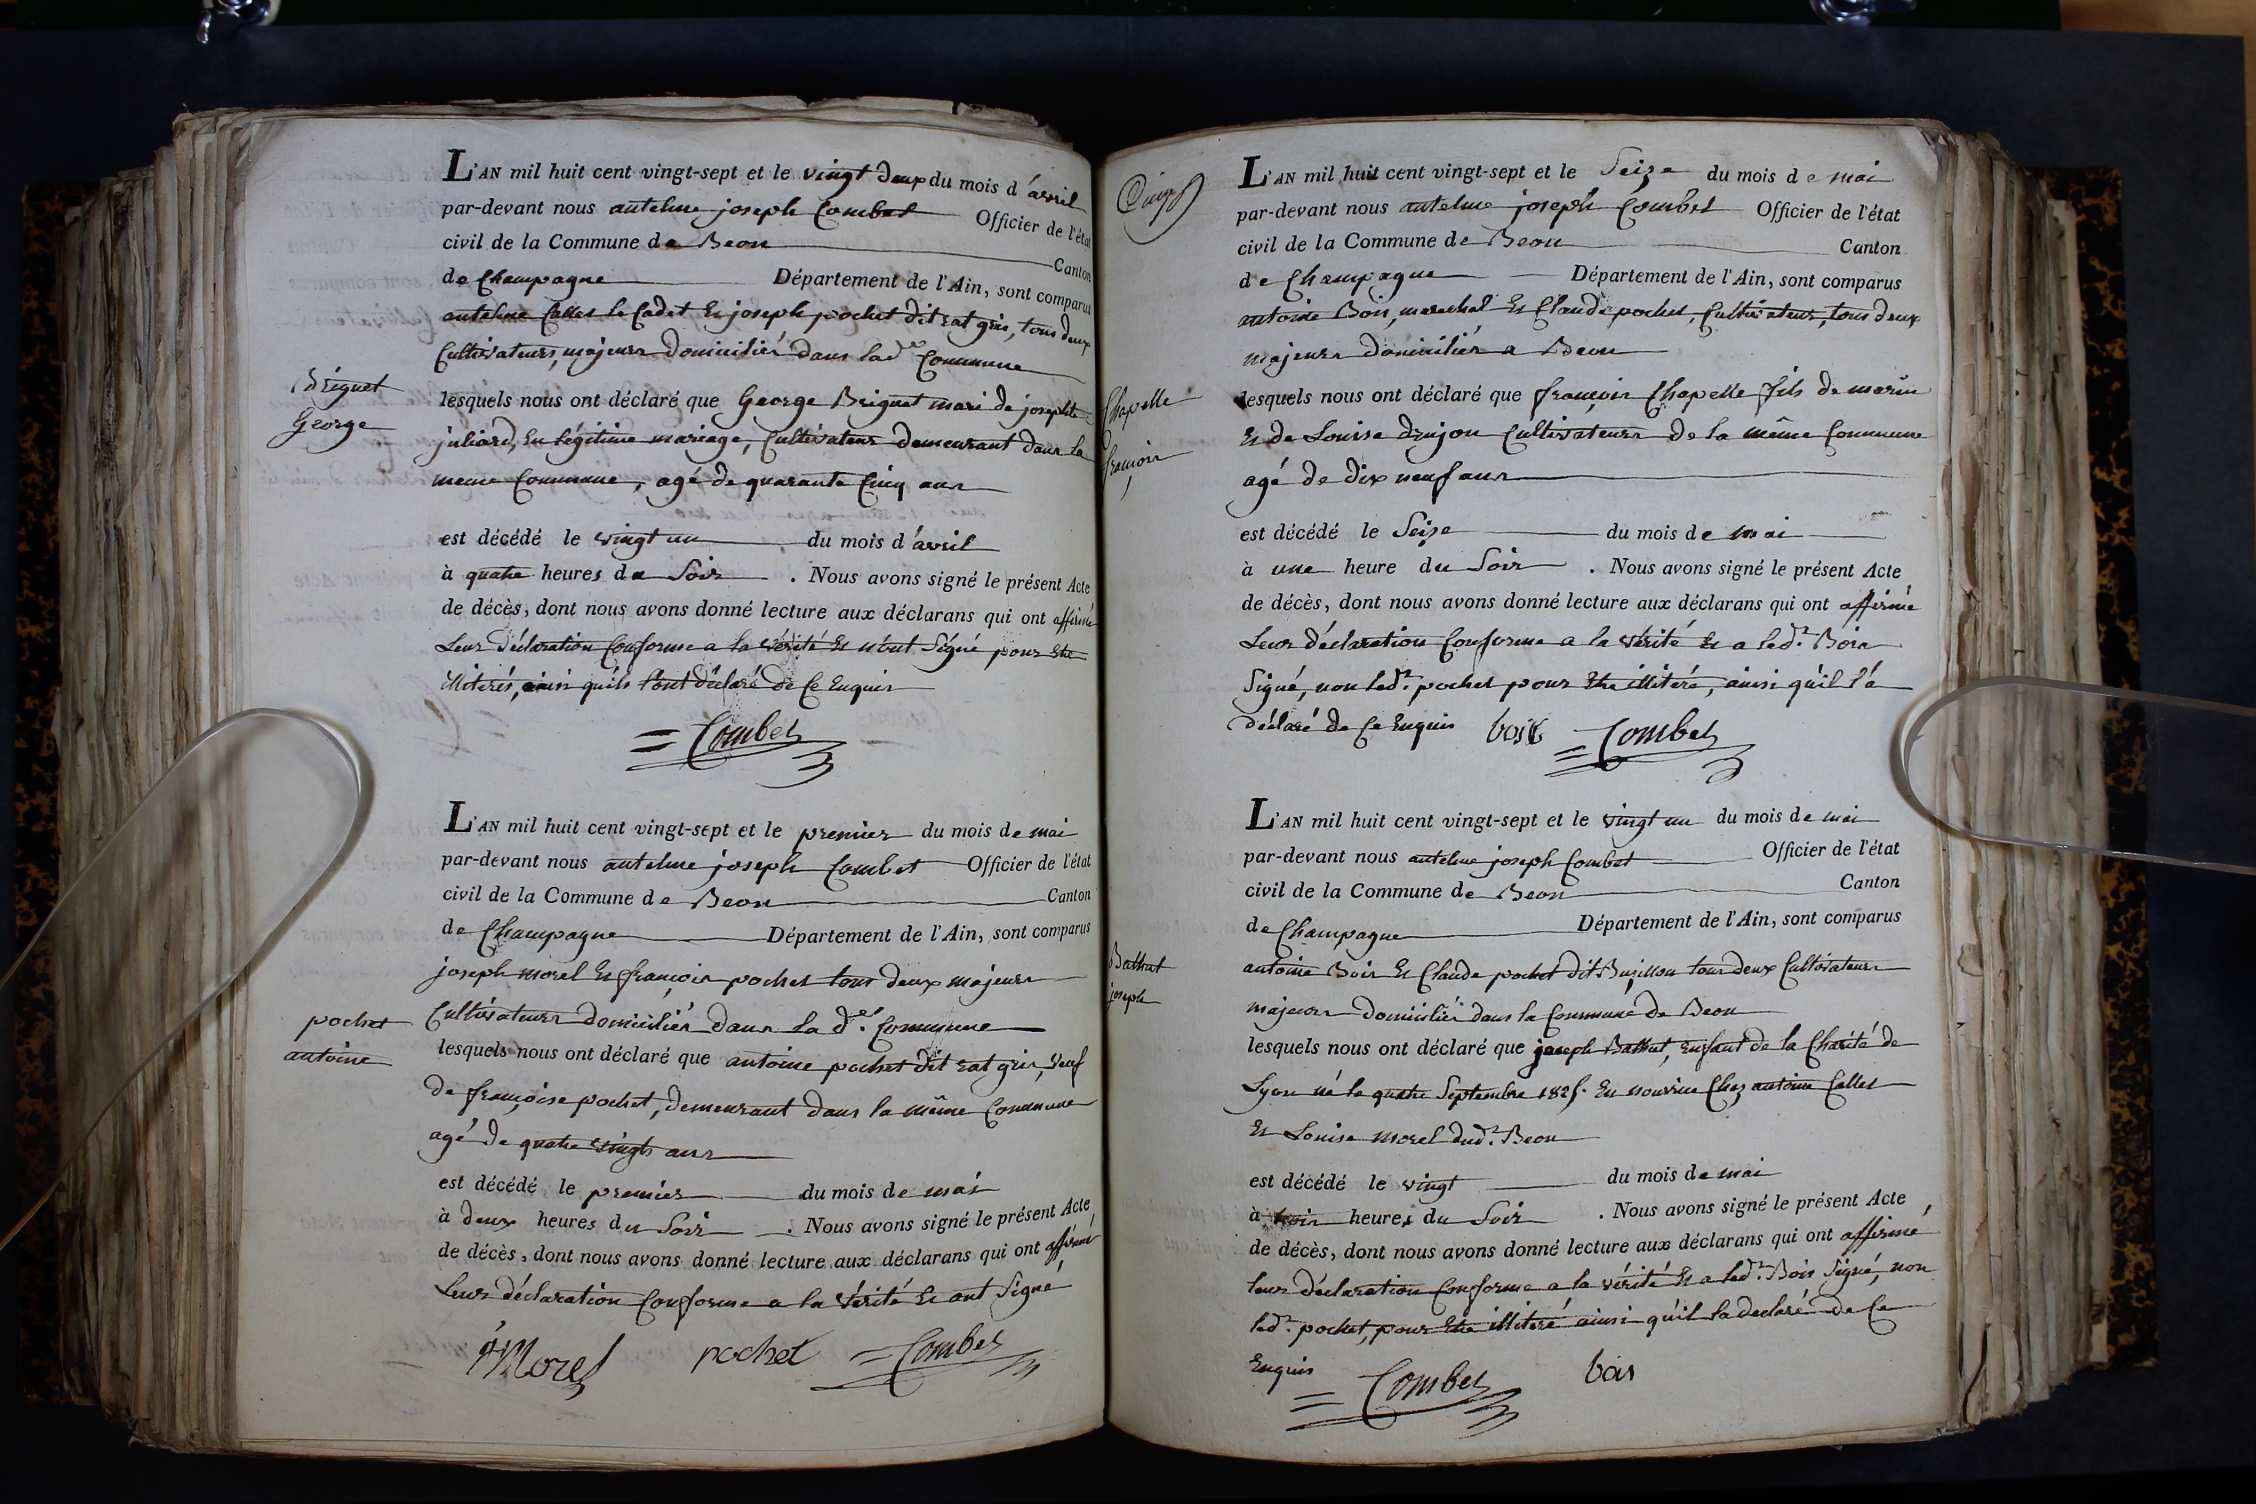 L'AN mil huit cent vingt-sept et le vingt deux du mois d'avril
par-devant nous antelme joseph Combet Officier de l'état
civil de la Commune de Beon Canton
de Champagne Département de l'Ain, sont comparus
antelme Callet le Cadet Et joseph pochet dit rat gris, tous deux
Cultivateurs, majeurs domiciliés dans lad.e Commune
Briquet
George
lesquels nous ont déclaré que George Briquet mari de josephte
juliard, En légitime mariage, Cultivateur demeurant dans la
meme Commune, agé de quarante Cinq ans
est décédé le vingt un du mois d'avril
à quatre heures du Soir. Nous avons signé le présent Acte
de décès, dont nous avons donné lecture aux déclarans qui ont affirmé
Leur déclaration Conforme a la vérité Et n'ont Signé pour Etre
illiterés, ainsi quils l'ont déclaré de Ce Enquis
Combet
L'AN mil huit cent vingt-sept et le premier du mois de mai
par-devant nous antelme joseph Combet Officier de l'état
civil de la Commune de Beon Canton
de Champagne Département de l'Ain, sont comparus
joseph morel Et françois pochet tous deux majeurs
Cultivateurs domiciliés dans la d.e Commune
pochet
antoine
lesquels nous ont déclaré que antoine pochet dit rat gris, veuf
de françoise pochet, demeurant dans la même Commune
agé de quatre vingts ans
est décédé le premier du mois de mai
à deux heures du Soir. Nous avons signé le présent Acte
de décès, dont nous avons donné lecture aux déclarans qui ont affirmé
Leur déclaration Conforme a la vérité Et ont Signé
Morel pochet Combet
L'AN mil huit cent vingt-sept et le Seize du mois de mai
par-devant nous antelme joseph Combet Officier de l'état
civil de la Commune de Beon Canton
de Champagne Département de l'Ain, sont comparus
antoine Bois, marechal Et Claude pochet, Cultivateur, tous deux
majeurs domiciliés a Beon
Chapelle
françois
lesquels nous ont déclaré que françois Chapelle fils de marin
Et de Louise drujon Cultivateurs de la même Commune
agé de dix neuf ans
est décédé le Seize du mois de mai
à une heure du Soir. Nous avons signé le présent Acte
de décès, dont nous avons donné lecture aux déclarans qui ont affirmé
Leur déclaration Conforme a la vérité Et a led.t Bois
Signé, non led.t pochet pour Etre illiteré, ainsi qu'il l'a
déclaré de Ce Enquis bois Combet
L'AN mil huit cent vingt-sept et le vingt un du mois de mai
par-devant nous antelme joseph Combet Officier de l'état
civil de la Commune de Beon Canton
de Champagne Département de l'Ain, sont comparus
antoine Bois Et Claude pochet dit tous deux Cultivateurs
majeurs domiciliés dans la Commune de Beon
Bathut
joseph
lesquels nous ont déclaré que joseph Bathut, enfant de la Charité de
Lyon né le quatre Septembre 1825. En nourice Chez antoine Callet
Et Louise morel dud.t Beon
est décédé le vingt du mois de mai
à trois heures du Soir. Nous avons signé le présent Acte
de décès, dont nous avons donné lecture aux déclarans qui ont affirmé
leur déclaration Conforme a la vérité Et a led.t Bois Signé, non
led.t pochet, pour Etre illiteré ainsi qu'il la declaré de Ce
Enquis Combet bois